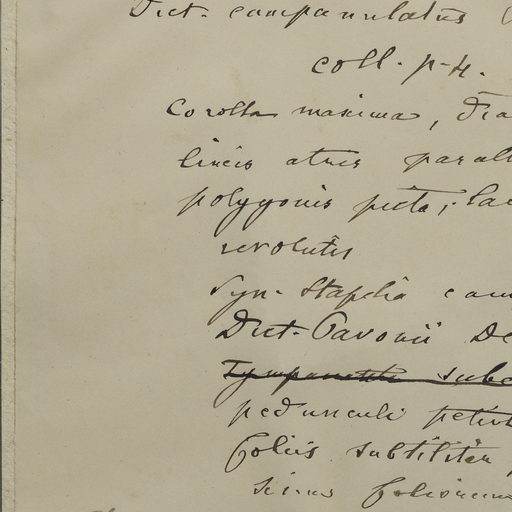 Dict. campanulatus
coll. p-4.
Corolla maxima, dia
lineis atris parall
polygonis picta; lac
revolutis
Syn. Stapelia cam
Dict. Pavonii De
Tympanantha subc
pedunculi petiol
foliis subtilitèr
sinus foliorum